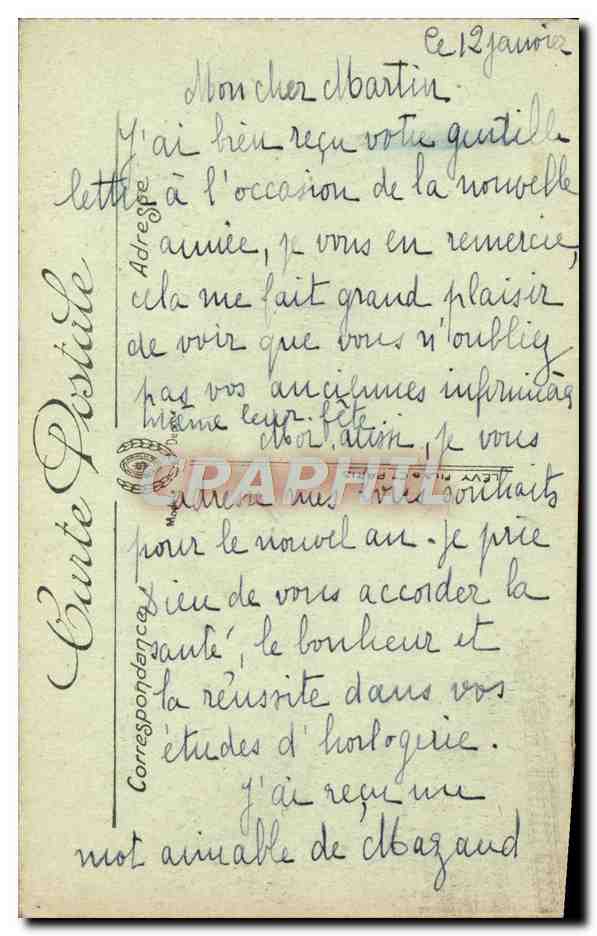 Le 12 janvier
Mon cher Martin.
J'ai bien reçu votre gentille
lettre à l'occasion de la nouvelle
année, je vous en remercie,
cela me fait grand plaisir
de voir que vous n'oubliez
pas vos anciennes infirmières
même leur fête
Moi aussi, je vous
adresse mes souhaits
pour le nouvel an. Je prie
Dieu de vous accorder la
santé, le bonheur et
la réussite dans vos
études d'horlogerie.
J'ai reçu un
mot aimable de Mazaud
Carte Postale
Correspondance
Adresse
CPAPHIL
LEVY FILS & Cie PARIS